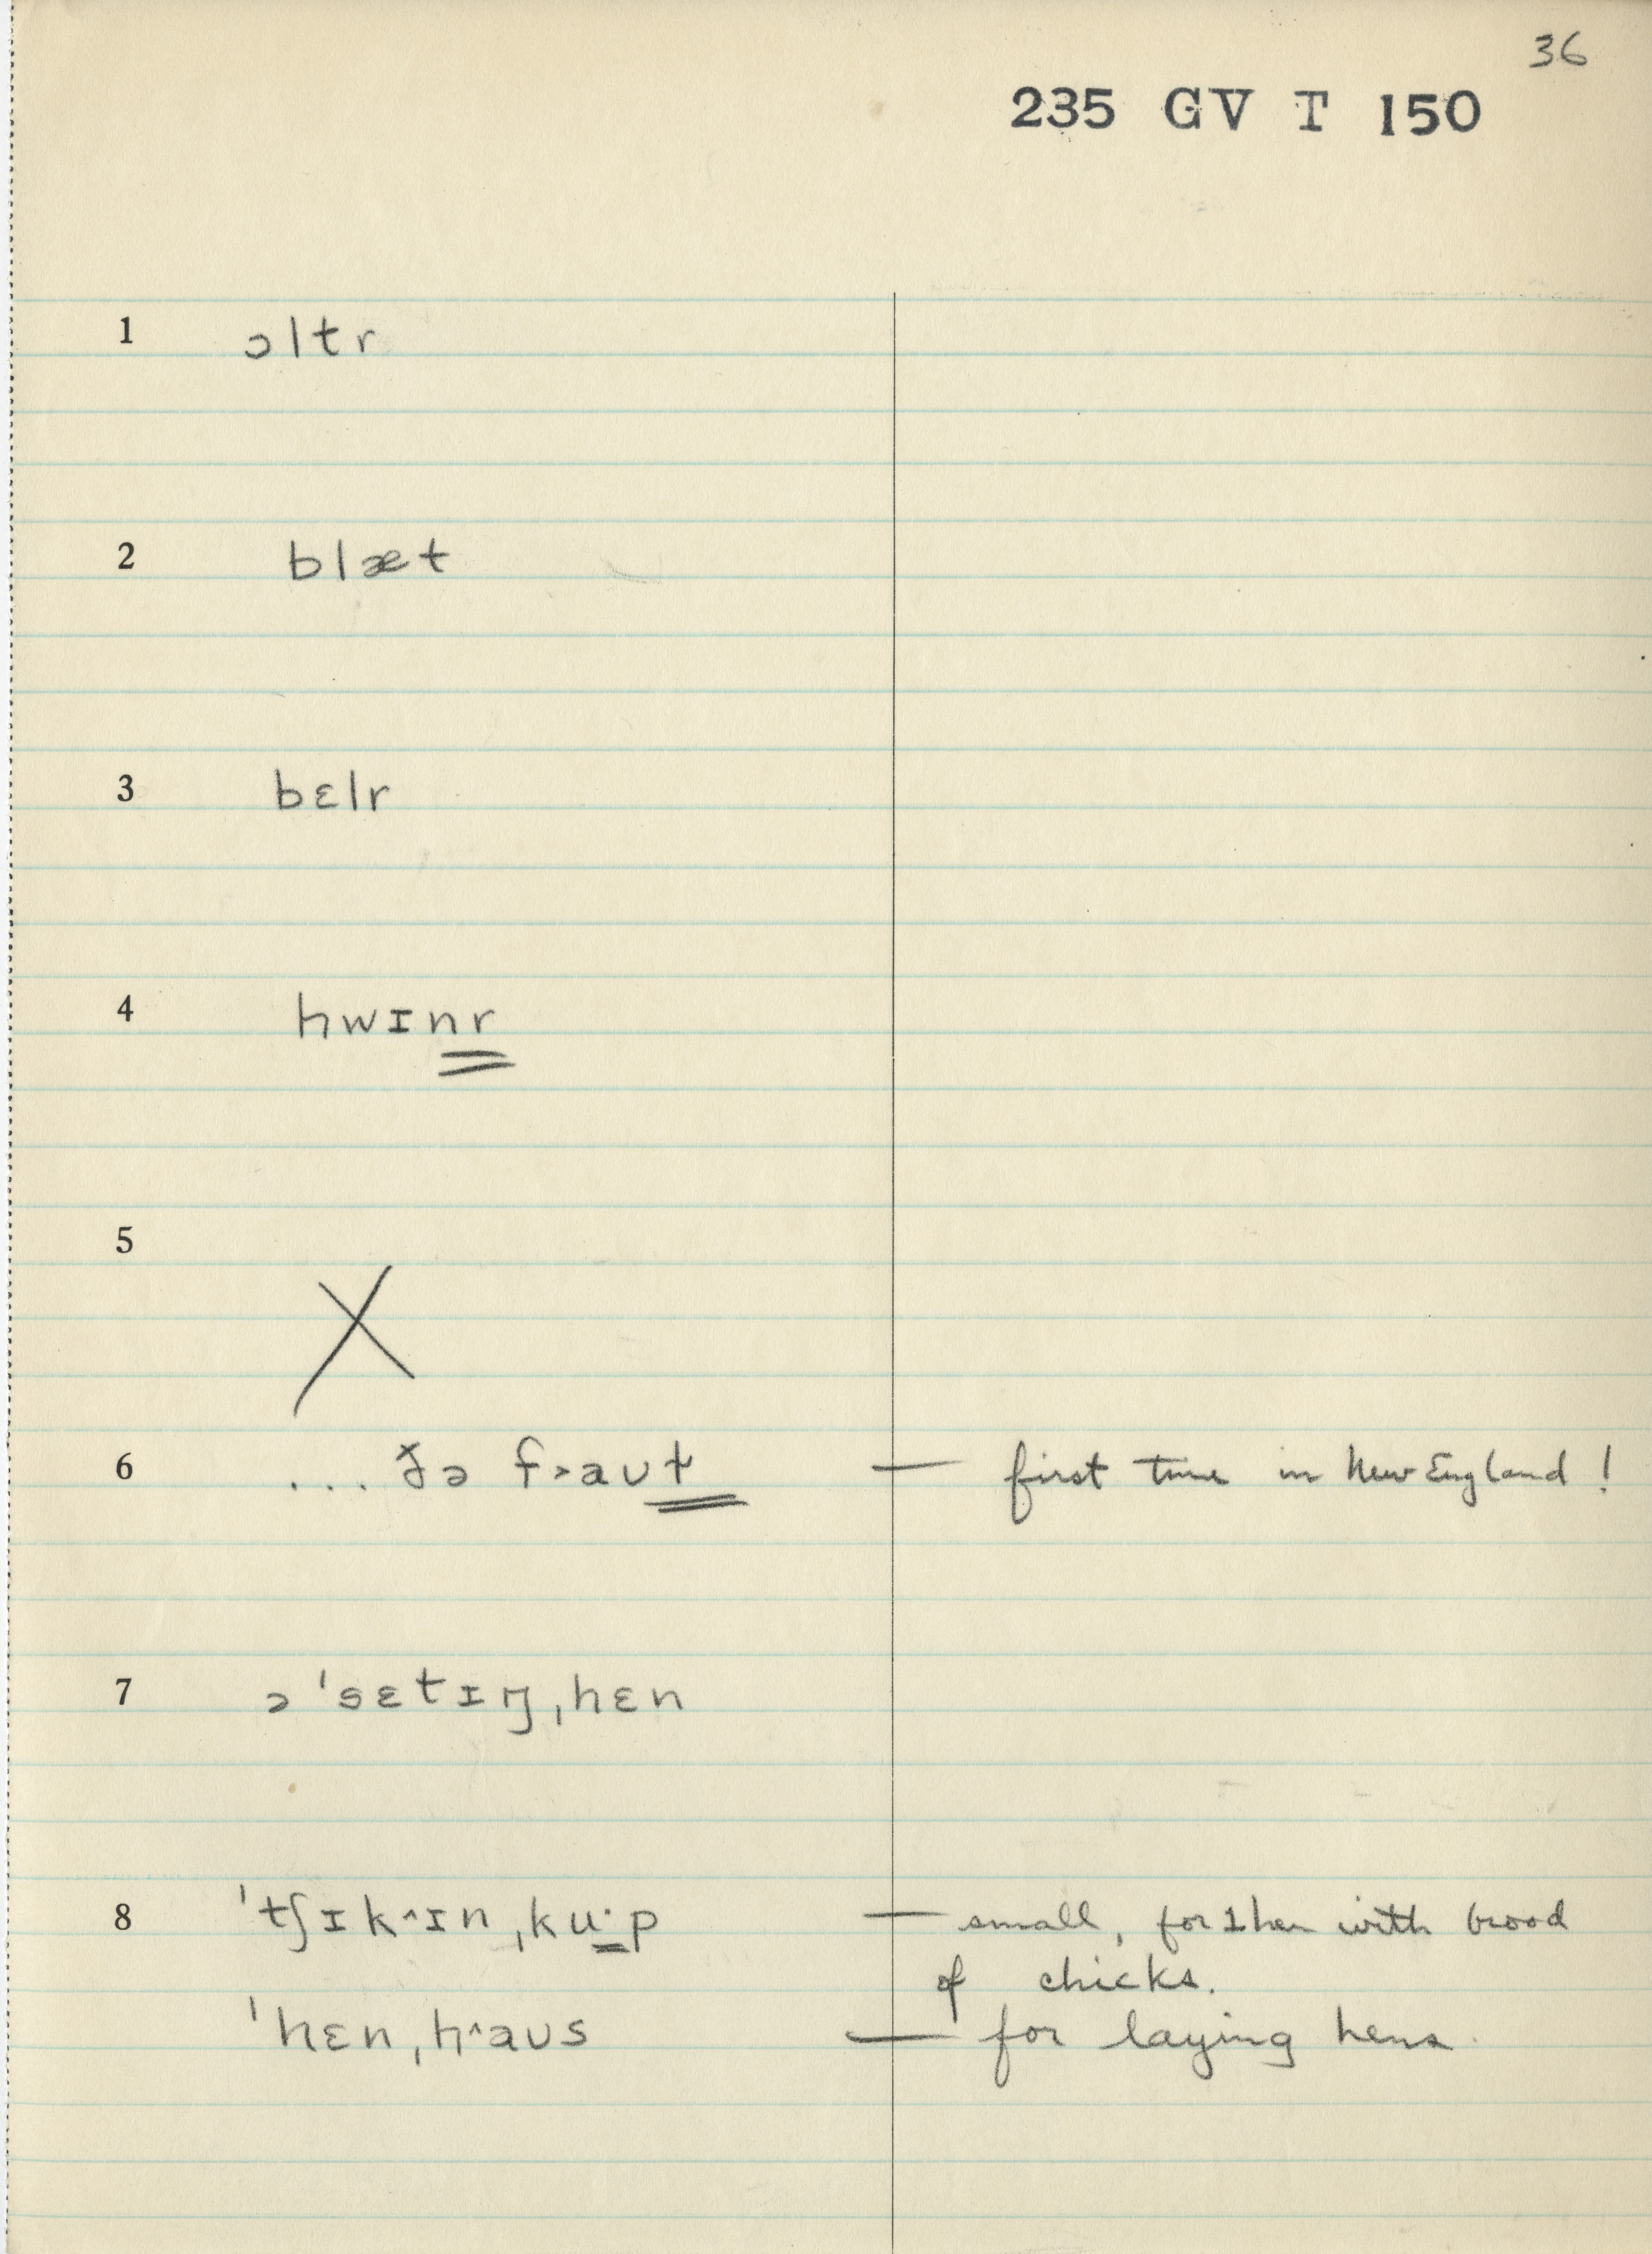 36
235 GV T 150
1 ɔltr
2 blæt
3 bɛlr
4 hwɪnr
5 X
6 ... ðə f˃aʊt — first time in New England!
7 ə ˈsɛtɪŋˌhɛn
8 ˈtʃɪk^ɪnˌkuˑp — small, for 1 hen with brood
of chicks.
ˈhɛnˌh^aʊs — for laying hens.